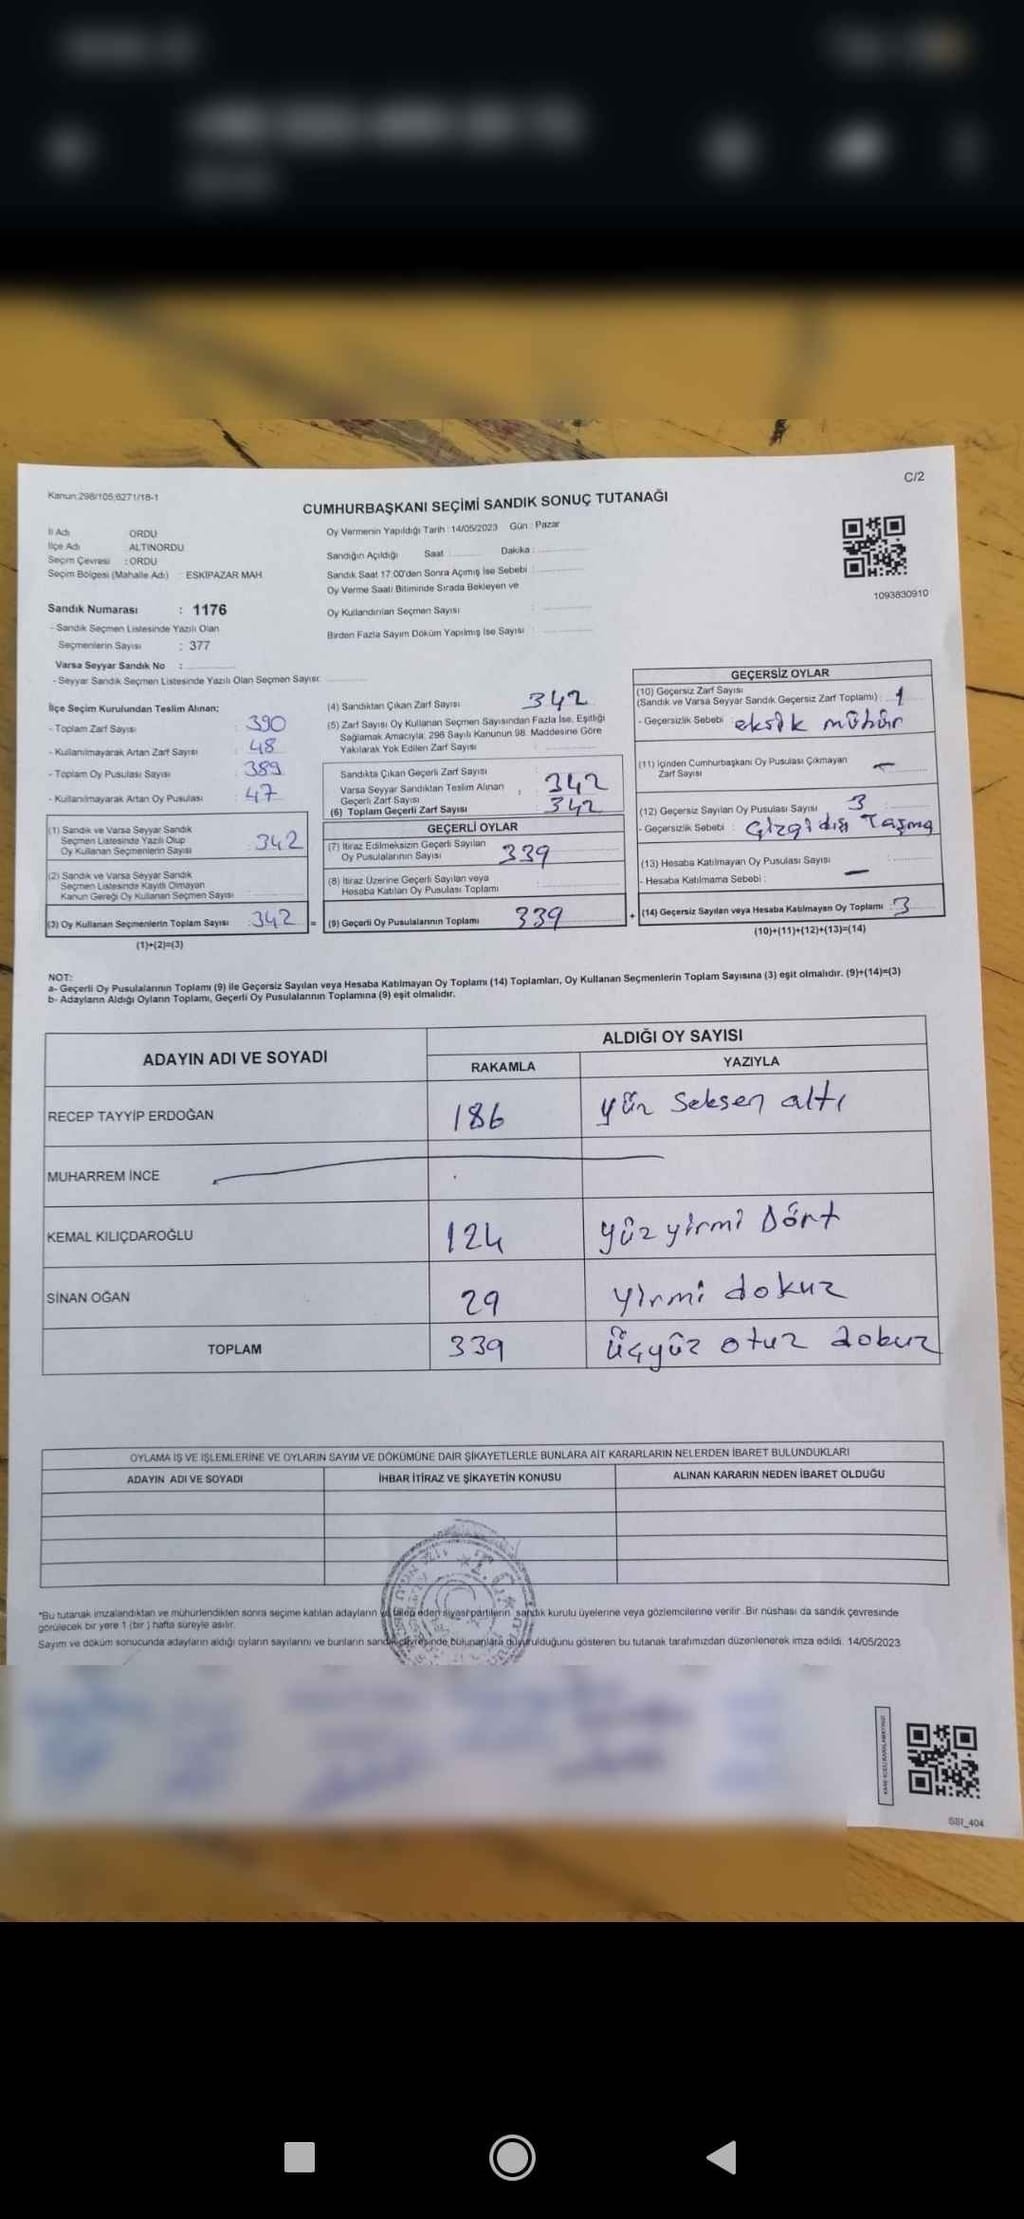 C/2
Kanun:298/105;6271/18-1
CUMHURBAŞKANI SEÇİMİ SANDIK SONUÇ TUTANAĞI
İl Adı ORDU
İlçe Adı ALTINORDU
Seçim Çevresi : ORDU
Seçim Bölgesi (Mahalle Adı) ESKİPAZAR MAH.
Sandık Numarası : 1176
- Sandık Seçmen Listesinde Yazılı Olan
Seçmenlerin Sayısı : 377
Varsa Seyyar Sandık No :
- Seyyar Sandık Seçmen Listesinde Yazılı Olan Seçmen Sayısı:
Oy Vermenin Yapıldığı Tarih : 14/05/2023 Gün : Pazar
Sandığın Açıldığı Saat Dakika :
Sandık Saat 17:00'den Sonra Açımış İse Sebebi :
Oy Verme Saati Bitiminde Sırada Bekleyen ve
Oy Kullandırılan Seçmen Sayısı :
Birden Fazla Sayım Döküm Yapılmış İse Sayısı :
1093830910
İlçe Seçim Kurulundan Teslim Alınan;
- Toplam Zarf Sayısı : 390
- Kullanılmayarak Artan Zarf Sayısı : 48
- Toplam Oy Pusulası Sayısı : 389
- Kullanılmayarak Artan Oy Pusulası : 47
(1) Sandık ve Varsa Seyyar Sandık
Seçmen Listesinde Yazılı Olup
Oy Kullanan Seçmenlerin Sayısı 342
(2) Sandık ve Varsa Seyyar Sandık
Seçmen Listesinde Kayıtlı Olmayan
Kanun Gereği Oy Kullanan Seçmen Sayısı
(3) Oy Kullanan Seçmenlerin Toplam Sayısı 342 =
(1)+(2)=(3)
(4) Sandıktan Çıkan Zarf Sayısı 342
(5) Zarf Sayısı Oy Kullanan Seçmen Sayısından Fazla İse, Eşitliği
Sağlamak Amacıyla; 298 Sayılı Kanunun 98. Maddesine Göre
Yakılarak Yok Edilen Zarf Sayısı
Sandıkta Çıkan Geçerli Zarf Sayısı
Varsa Seyyar Sandıktan Teslim Alınan
Geçerli Zarf Sayısı : 342
(6) Toplam Geçerli Zarf Sayısı 342
GEÇERLİ OYLAR
(7) İtiraz Edilmeksizin Geçerli Sayılan
Oy Pusulalarının Sayısı 339
(8) İtiraz Üzerine Geçerli Sayılan veya
Hesaba Katılan Oy Pusulası Toplamı
(9) Geçerli Oy Pusulalarının Toplamı 339 +
GEÇERSİZ OYLAR
(10) Geçersiz Zarf Sayısı
(Sandık ve Varsa Seyyar Sandık Geçersiz Zarf Toplamı) : 1
- Geçersizlik Sebebi eksik mühür
(11) İçinden Cumhurbaşkanı Oy Pusulası Çıkmayan
Zarf Sayısı -
(12) Geçersiz Sayılan Oy Pusulası Sayısı 3
- Geçersizlik Sebebi : Çizgi dışı Taşma
(13) Hesaba Katılmayan Oy Pusulası Sayısı
- Hesaba Katılmama Sebebi : -
(14) Geçersiz Sayılan veya Hesaba Katılmayan Oy Toplamı : 3
(10)+(11)+(12)+(13)=(14)
NOT:
a- Geçerli Oy Pusulalarının Toplamı (9) ile Geçersiz Sayılan veya Hesaba Katılmayan Oy Toplamı (14) Toplamları, Oy Kullanan Seçmenlerin Toplam Sayısına (3) eşit olmalıdır. (9)+(14)=(3)
b- Adayların Aldığı Oyların Toplamı, Geçerli Oy Pusulalarının Toplamına (9) eşit olmalıdır.
ADAYIN ADI VE SOYADI ALDIĞI OY SAYISI
RAKAMLA YAZIYLA
RECEP TAYYİP ERDOĞAN 186 yüz seksen altı
MUHARREM İNCE
KEMAL KILIÇDAROĞLU 124 yüz yirmi Dört
SİNAN OĞAN 29 yirmi dokuz
TOPLAM 339 üçyüz otuz dokuz
OYLAMA İŞ VE İŞLEMLERİNE VE OYLARIN SAYIM VE DÖKÜMÜNE DAİR ŞİKAYETLERLE BUNLARA AİT KARARLARIN NELERDEN İBARET BULUNDUKLARI
ADAYIN ADI VE SOYADI İHBAR İTİRAZ VE ŞİKAYETİN KONUSU ALINAN KARARIN NEDEN İBARET OLDUĞU
"Bu tutanak imzalandıktan ve mühürlendikten sonra seçime katılan adayların ve talep eden siyasi partilerin sandık kurulu üyelerine veya gözlemcilerine verilir. Bir nüshası da sandık çevresinde
görülecek bir yere 1 (bir) hafta süreyle asılır.
Sayım ve döküm sonucunda adayların aldığı oyların sayılarını ve bunların sandık çevresinde bulunanlara duyurulduğunu gösteren bu tutanak tarafımızdan düzenlenerek imza edildi. 14/05/2023
SSİ_404